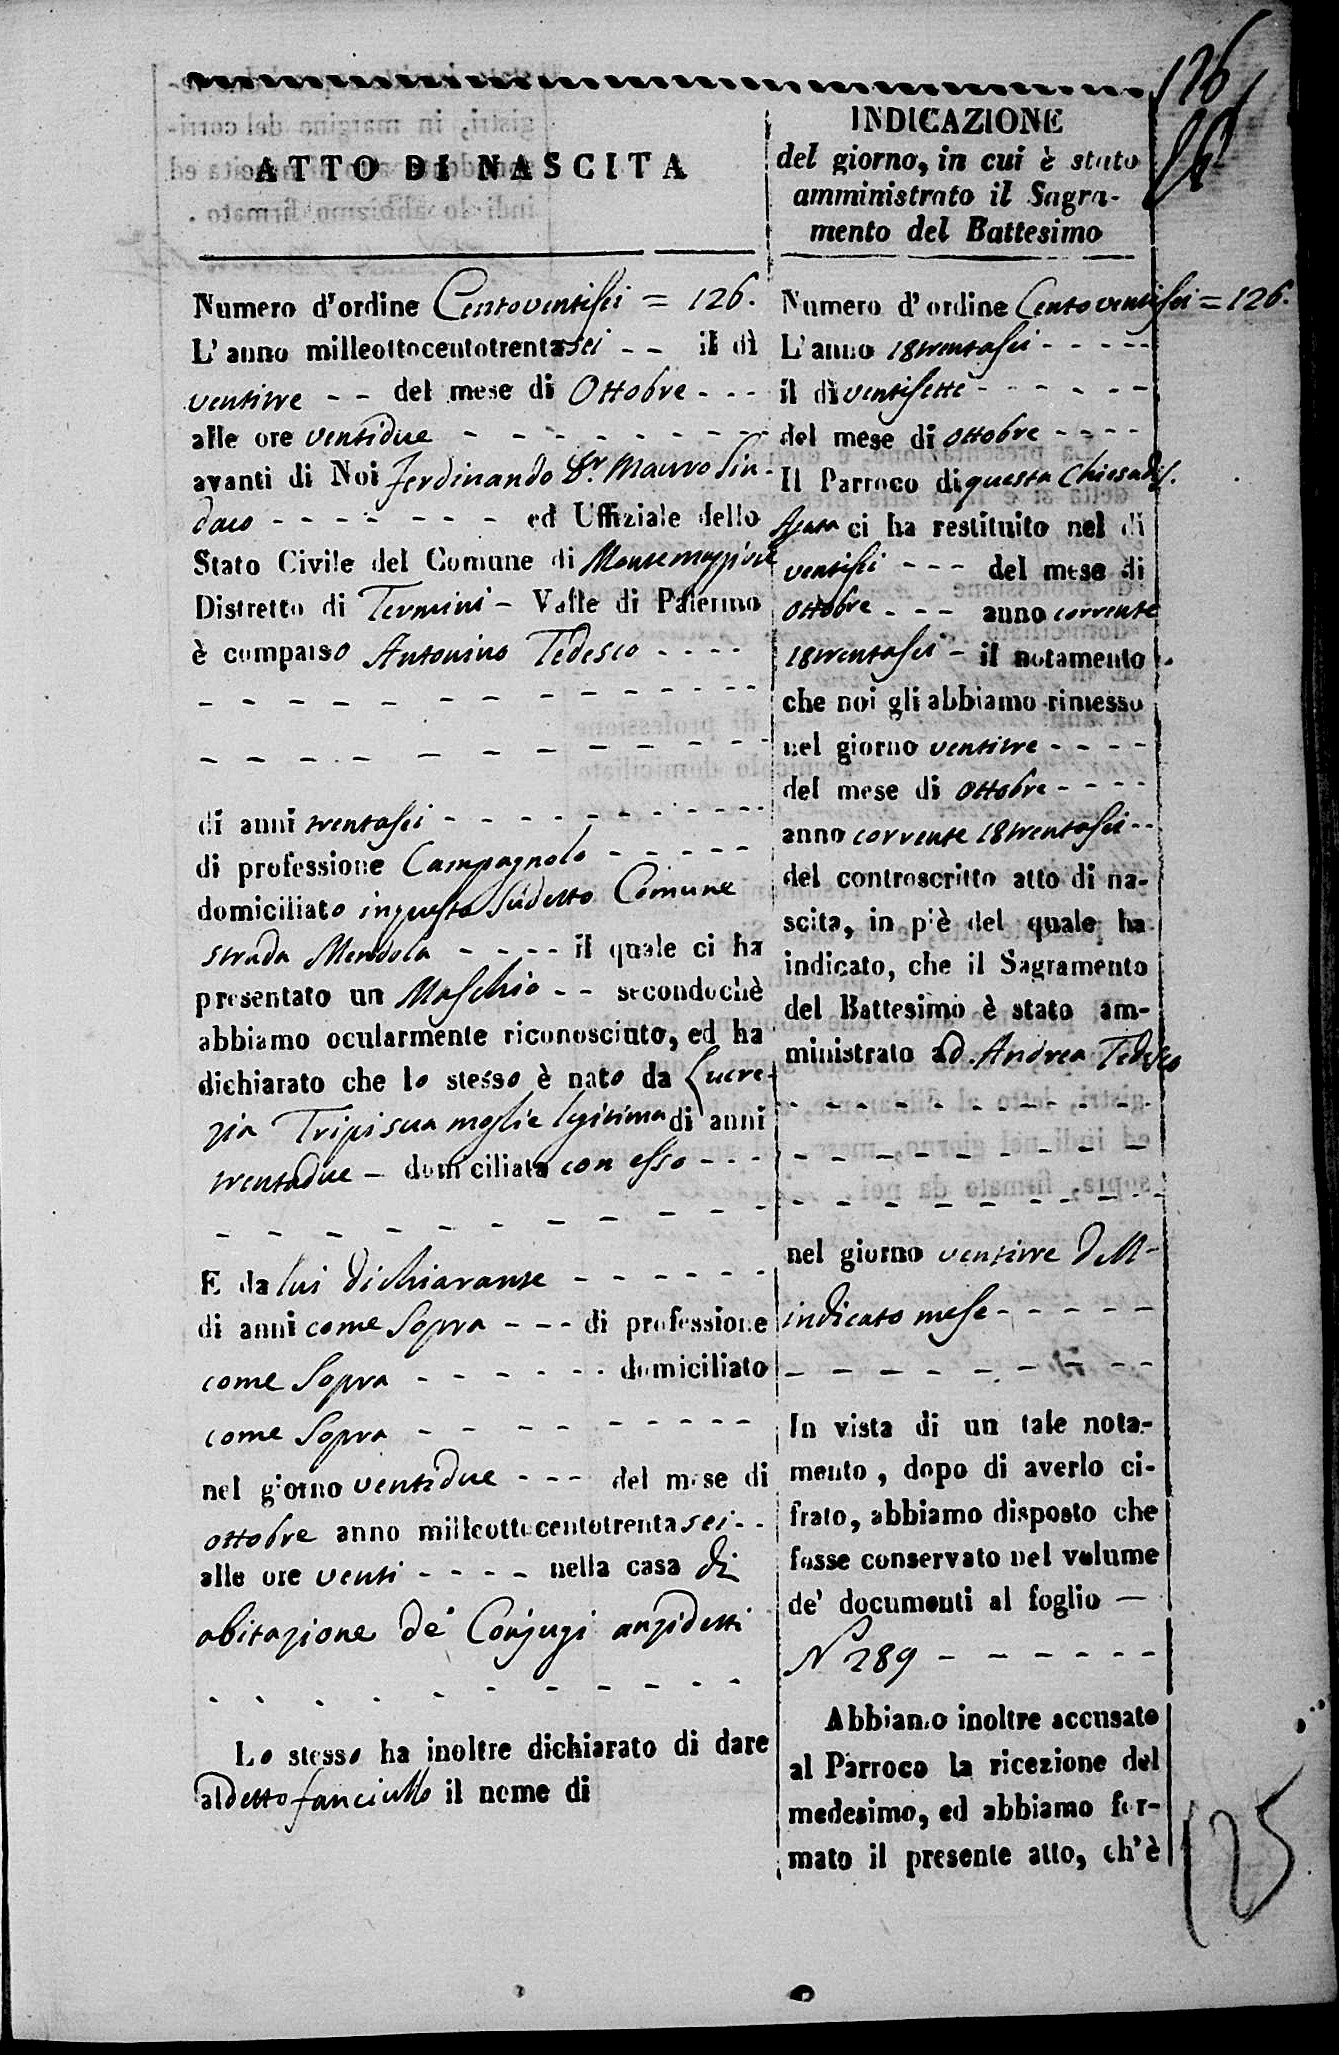 126
ATTO DI NASCITA
Numero d'ordine Centoventisei = 126.
L'anno milleottocentotrentasei - - il dì
ventitre - - del mese di Ottobre - - -
alle ore ventidue - - - - - - - - -
avanti di Noi Ferdinando Dr. Mauro Sin-
daco - - - - - - - ed Uffiziale dello
Stato Civile del Comune di Montemaggiore
Distretto di Termini - Valle di Palermo
è comparso Antonino Tedesco - - - -
di anni trentasei - - - - - - - - -
di professione Campagnolo - - - - -
domiciliato in questo Sudetto Comune
strada Mendola - - - - il quale ci ha
presentato un Maschio - - secondochè
abbiamo ocularmente riconosciuto, ed ha
dichiarato che lo stesso è nato da Lucre-
zia Tripi sua moglie legitima di anni
trentadue - domiciliata con esso - - -
E da lui dichiarante - - - - - -
di anni come Sopra - - - di professione
come Sopra - - - - - - domiciliato
come Sopra - - - - - - - - - -
nel giorno ventidue - - - del mese di
ottobre anno milleottocentotrentasei - -
alle ore venti - - - - nella casa di
abitazione de' Conjugi anzidetti
Lo stesso ha inoltre dichiarato di dare
al detto fanciullo il nome di
INDICAZIONE
del giorno, in cui è stato
amministrato il Sagra-
mento del Battesimo
Numero d'ordine Centoventisei = 126.
L'anno 18trentasei - - - - -
il dì ventisette - - - - - -
del mese di ottobre - - - -
Il Parroco di questa Chiesa
ci ha restituito nel dì
ventisei - - - del mese di
ottobre - - - anno corrente
18trentasei - il notamento
che noi gli abbiamo rimesso
nel giorno ventitre - - - -
del mese di ottobre - - - -
anno corrente 18trentasei - -
del controscritto atto di na-
scita, in piè del quale ha
indicato, che il Sagramento
del Battesimo è stato am-
ministrato ad Andrea Tedesco
nel giorno ventitre dell'
indicato mese - - - - -
In vista di un tale nota-
mento, dopo di averlo ci-
frato, abbiamo disposto che
fosse conservato nel volume
de' documenti al foglio —
N° 289 - - - - - -
Abbiamo inoltre accusato
al Parroco la ricezione del
medesimo, ed abbiamo for-
mato il presente atto, ch'è
125